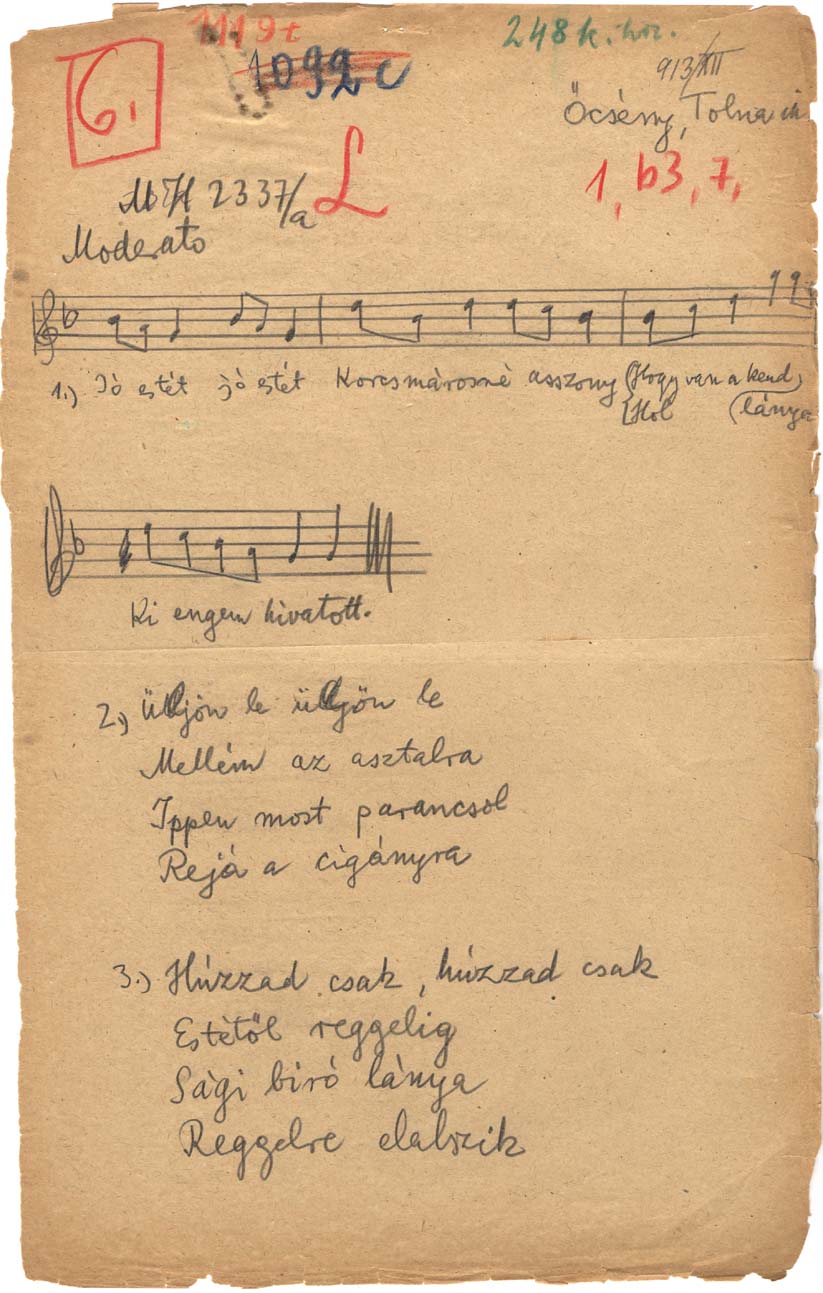 1119 t
248 k.
1092 c
6.
913/XII
Őcsény, Tolna
L
1, b3, 7,
MH 2337/a
Moderato
1.) Jó estét jó estét Korcsmárosné asszony (Hogy van a kend)
Hol (lánya
Ki engem hivatott.
2.) Üljön le üljön le
Mellém az asztalra
Ippen most parancsol
Rejá a cigányra
3.) Húzzad csak, húzzad csak
Estétől reggelig
Sági biró lánya
Reggelre elalszik